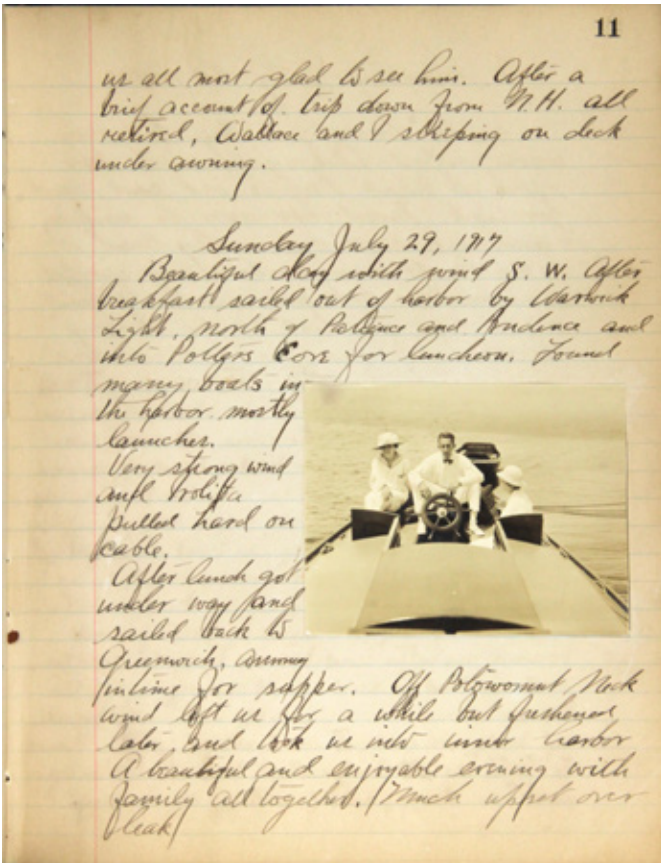 11
us all most glad to see him. After a
brief account of trip down from N.H. all
retired, Wallace and I sleeping on deck
under awning.
Sunday July 29, 1917
Beautiful day with wind S. W. After
breakfast sailed out of harbor by Warwick
Light, north of Patience and Prudence and
into Potters Cove for luncheon. Found
many boats in
the harbor mostly
launches.
Very strong wind
and
pulled hard on
cable.
After lunch got
under way and
sailed back to
Greenwich,
in time for supper. Off Potowomut Neck
wind left us for a while but freshened
later and took us into inner harbor
A beautiful and enjoyable evening with
family all together. (Much upset over
leak)